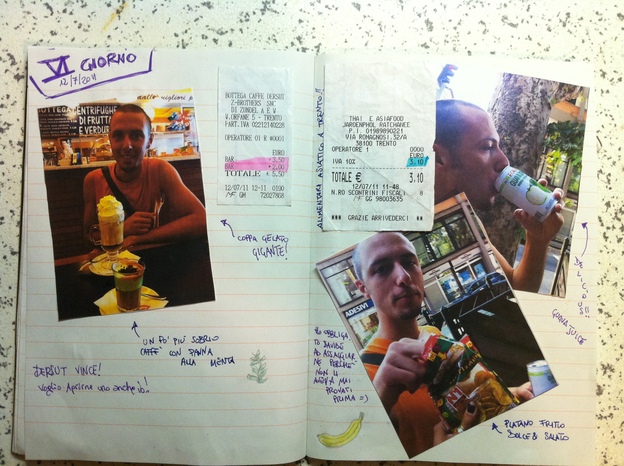 VI GIORNO
12/7/2011
BOTTEGA
CENTRIFUGHE
DI FRUTTA
E VERDURA
BOTTEGA CAFFE DERSUT
Z-BROTHERS SNC
DI ZONDEL A E W
V.ORFANE 5 - TRENTO
PART.IVA 02212140228
OPERATORE 01 # #0001
EURO
BAR 3.50
BAR 2.00
TOTALE € 5.50
12/07/11 12-11 0100
MF GM 72027808
COPPA GELATO
GIGANTE!
UN PO' PIÙ SOBRIO
CAFFE' CON PANNA
ALLA MENTA
DERSUT VINCE!
Voglio aprirne uno anche io!!
ALIMENTARI ASIATICI A TRENTO!!
THAI E ASIAFOOD
JARDENPHOL RATCHANEE
P.I. 01989890221
VIA ROMAGNOSI,32/A
38100 TRENTO
OPERATORE 1 0000
EURO
IVA 10% 3.10
TOTALE € 3.10
12/07/11 11-48
N.RO SCONTRINI FISCALI 8
MF GG 98003635
*** GRAZIE ARRIVEDERCI **
DELICIOUS!!
GUAVA JUICE
ADESIVI
HO OBBLIGA
TO DAVIDE
AD ASSAGGIAR
NE PERCHÈ
NON LI
AVEVA MAI
PROVATI
PRIMA =)
PLATANO FRITTO
DOLCE & SALATO